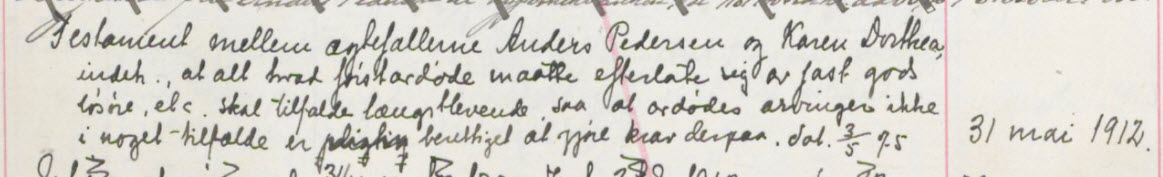 Testament mellem ægtefællerne Anders Pedersen og Karen Dorthea,
indeh., at alt hvad førstavdøde maatte efterlate sig av fast gods
løsøre, etc. skal tilfalde længstlevende, saa at avdødes arvinger ikke
i noget tilfælde er berettiget at gjøre krav derpaa. dat. 3/5 95 31 mai 1912.